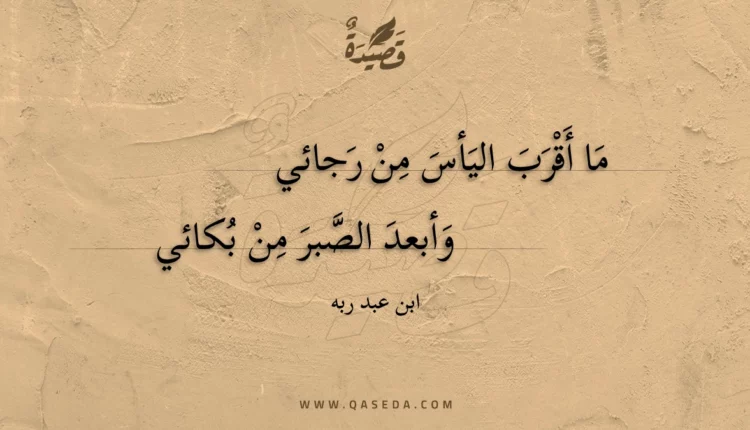 قَصِيدَةٌ
مَا أَقْرَبَ اليَأسَ مِنْ رَجائي
وَأبعدَ الصَّبرَ مِنْ بُكائي
ابن عبد ربه
WWW.QASEDA.COM